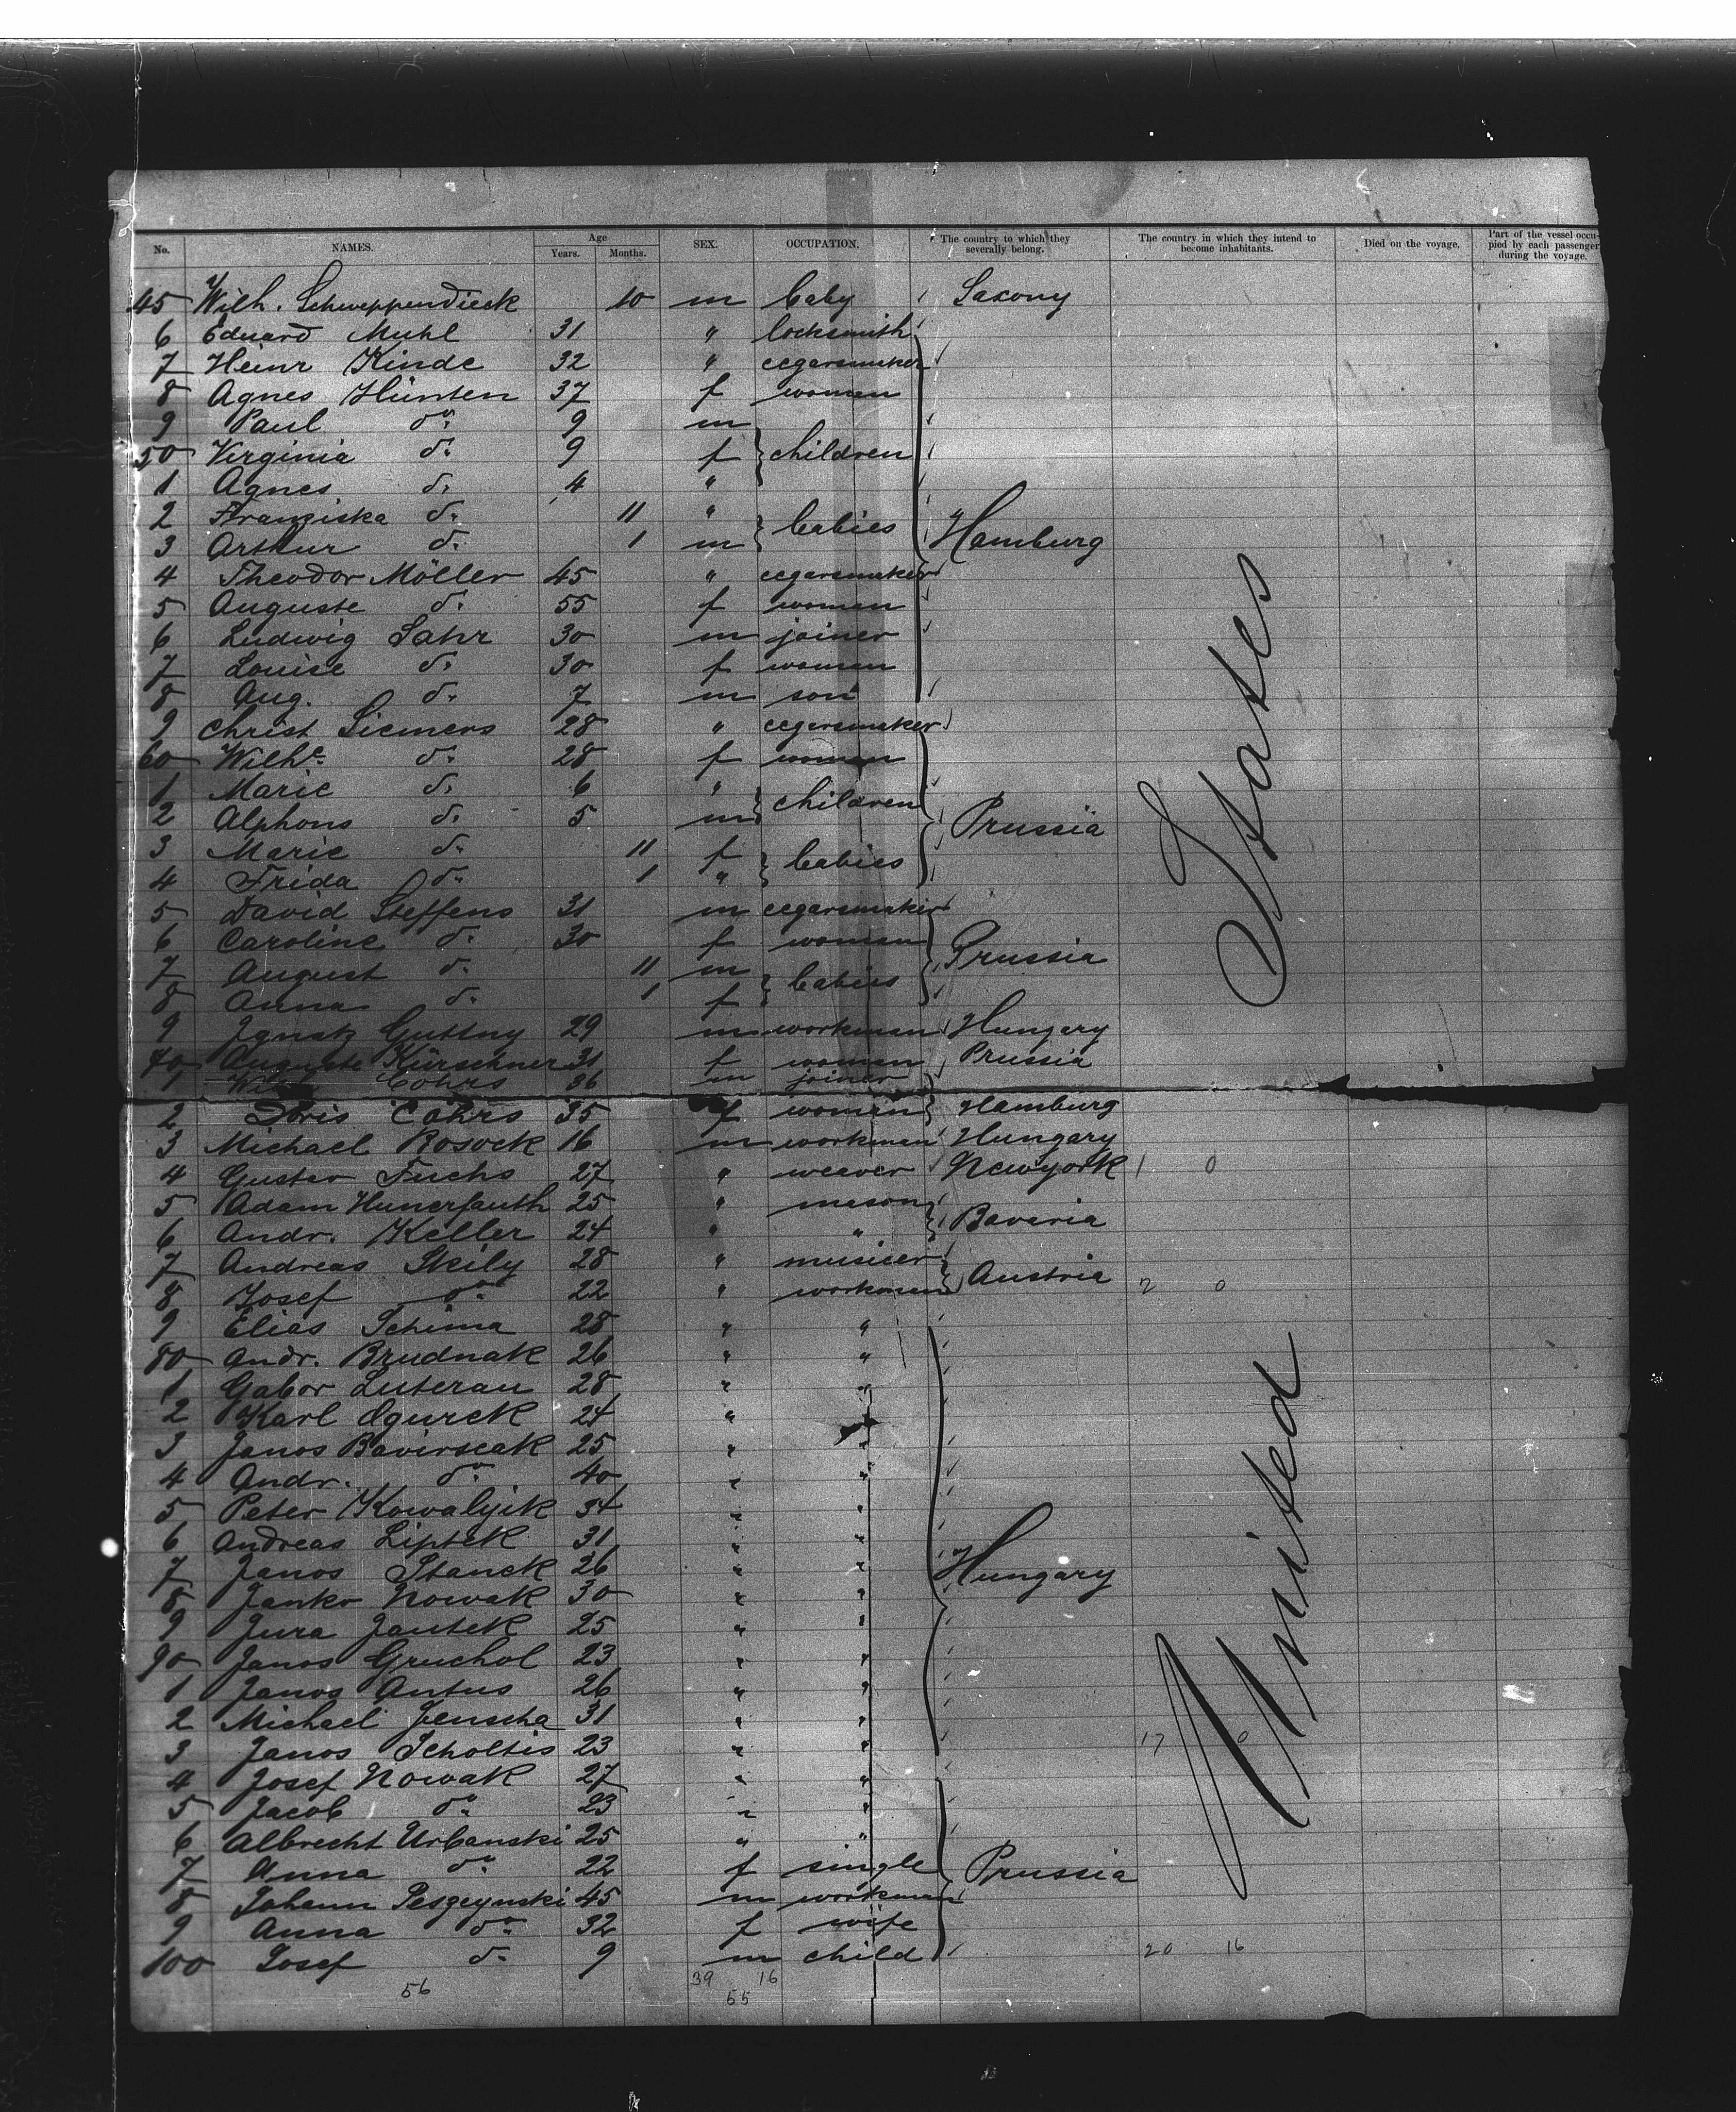 No. NAMES. Age Years. Months. SEX. OCCUPATION. The country to which they severally belong. The country in which they intend to become inhabitants. Died on the voyage. Part of the vessel occupied by each passenger during the voyage.
45 Wilh. Schweppendieck 10 m baby Saxony
6 Eduard Muhl 31 " locksmith
7 Heinr Kinde 32 " cegarsmaker
8 Agnes Hünten 37 f woman
9 Paul do. 9 m
50 Virginia do. 9 f children
1 Agnes do. 4 "
2 Franziska do. 11 "
3 Arthur do. 1 m babies Hamburg
4 Theodor Möller 45 " cegarsmaker
5 Auguste do. 55 f woman
6 Ludwig Sahr 30 m joiner
7 Louise do. 30 f woman
8 Aug. do. 7 m son
9 Christ Siemers 28 " cegarsmaker
60 Wilhe. do. 28 f woman
1 Marie do. 6 " children
2 Alphons do. 5 m Prussia
3 Marie do. 11 f babies
4 Frida do. 1 "
5 David Steffens 31 m cegarsmaker
6 Caroline do. 30 f woman Prussia
7 August do. 11 m babies
8 Anna do. 1 f
9 Ignatz Guttny 29 m workman Hungary
70 Auguste Kürschner 31 f woman Prussia
1 Cohrs 36 m joiner
2 Doris Cohrs 35 f woman Hamburg
3 Michael Rosock 16 m workman Hungary
4 Gustav Fuchs 27 " weaver Newyork 1 0
5 Adam Hunerfauth 25 " mason
6 Andr. Keller 24 " " Bavaria
7 Andreas Skily 28 " musicer
8 Josef do. 22 " workman Austria 2 0
9 Elias Schima 28 " "
80 Andr. Brudnak 26 " "
1 Gabor Luterau 28 " "
2 Karl Ogurek 24 " "
3 Janos Bavirscak 25 " "
4 Andr. do. 40 " "
5 Peter Kowalyik 34 " "
6 Andreas Liptek 31 " "
7 Janos Stanek 26 " " Hungary
8 Janko Nowak 30 " "
9 Jura Jantek 25 " "
90 Janos Gruchol 23 " "
1 Janos Antus 26 " "
2 Michael Jenscha 31 " "
3 Janos Scholtis 23 " " 17 0
4 Josef Nowak 27 " "
5 Jacob do. 23 " "
6 Albrecht Urbanski 25 " "
7 Anna do. 22 f single Prussia
8 Johann Peszeynski 45 m workman
9 Anna do. 32 f wife
100 Josef do. 9 m child 20 16
56 39 16
55
United States